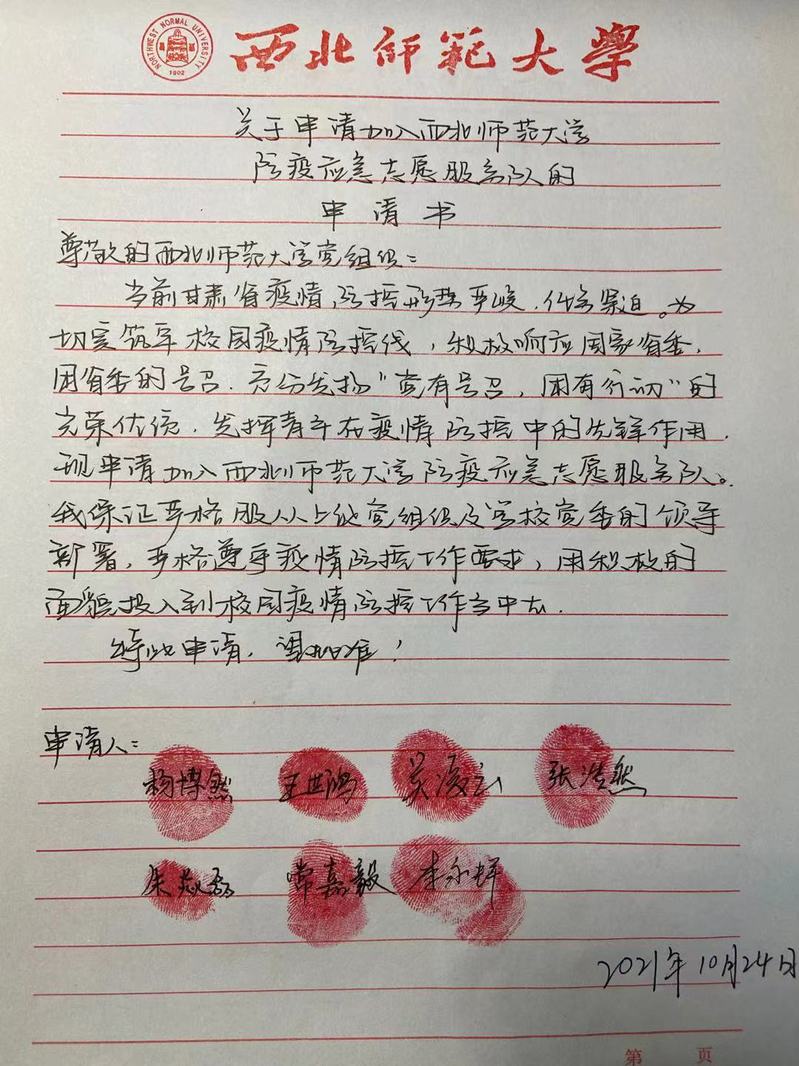 NORTHWEST NORMAL UNIVERSITY
1902
西北师范大学
关于申请加入西北师范大学
防疫应急志愿服务队的
申请书
尊敬的西北师范大学党组织：
当前甘肃省疫情防控形势严峻，任务紧迫。为
切实筑牢校园疫情防控线，积极响应国家省委，
团省委的号召，充分发扬“党有号召，团有行动”的
光荣传统，发挥青年在疫情防控中的先锋作用，
现申请加入西北师范大学防疫应急志愿服务队。
我保证严格服从上级党组织及学校党委的领导
部署，严格遵守疫情防控工作要求，用积极的
面貌投入到校园疫情防控工作当中去．
特此申请，望批准！
申请人：
杨博然 王世鸿 吴凌云 张浩然
朱焱磊 常嘉毅 李永辉
2021年10月24日
第 页